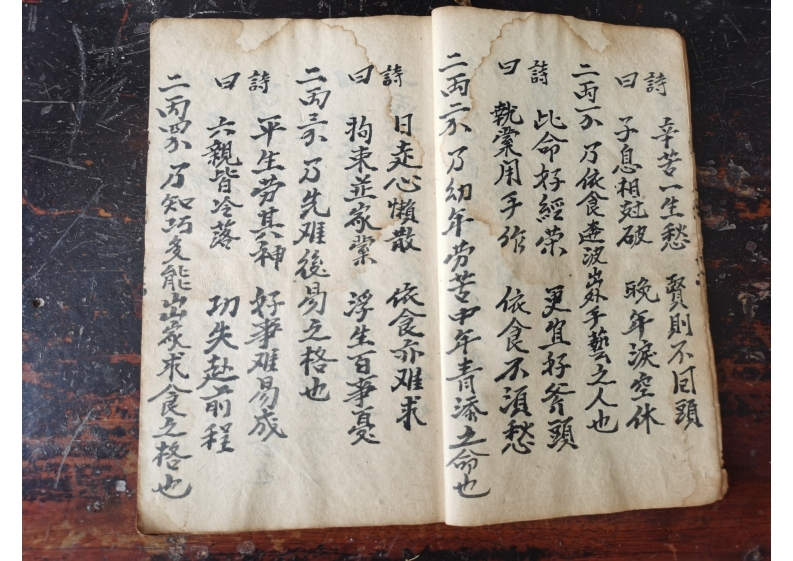 詩曰 辛苦一生愁 賢則不回頭
子息相尅破 晚年淚空休
二丙一分 乃依食奔波出外手藝之人也
詩曰 此命好經荣 更宜好斧頭
執業用手作 依食不須愁
二丙二分 乃幼年劳苦中年青添之命也
詩曰 日走心懒散 依食亦难求
拘束並家業 浮生百事憂
二丙三分 乃先难後易之格也
詩曰 平生劳其神 好事难易成
六親皆冷落 功失赴前程
二丙四分 乃知巧多能出家求食之格也